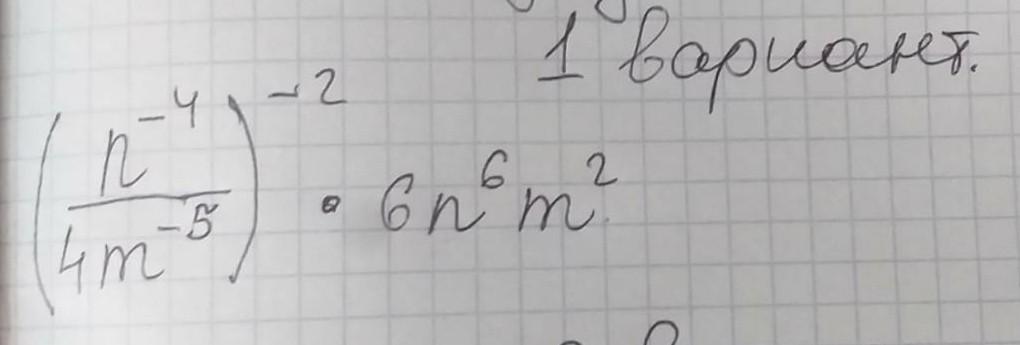 1 вариант.
(n⁻⁴/4m⁻⁵)⁻² · 6n⁶m²